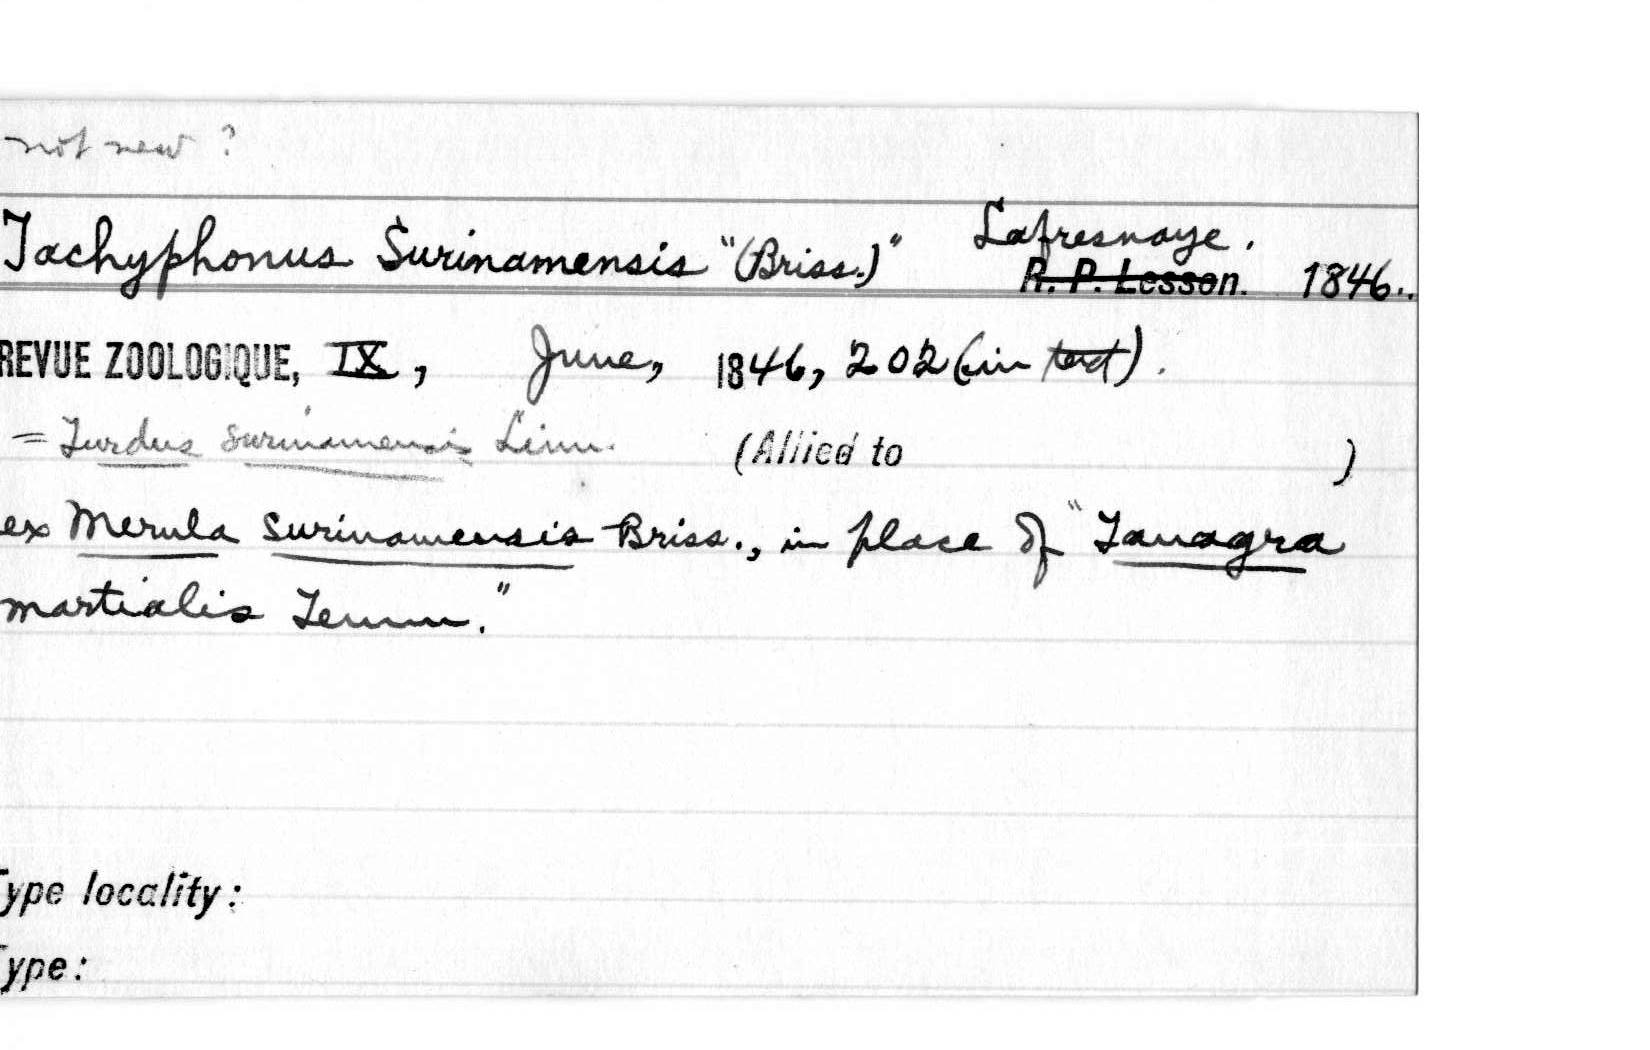 not new ?
Tachyphonus Surinamensis "(Briss.)" Lafresnaye.
R. P. Lesson. 1846..
REVUE ZOOLOGIQUE, IX, June, 1846, 202 (in text).
= Turdus surinamensis Linn. (Allied to )
ex Merula surinamensis Briss., in place of "Tanagra
martialis Temm."
Type locality:
Type: